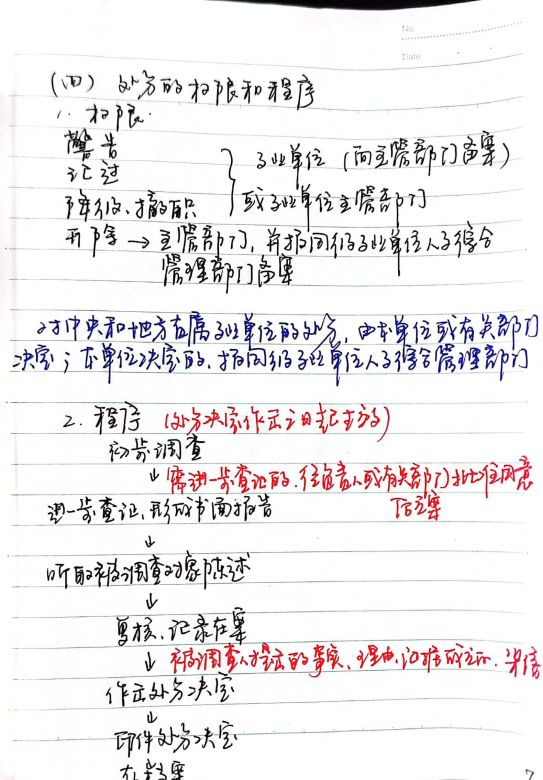 No.
Date
(四) 处分的权限和程序
1. 权限.
警告
记过
降级、撤职
} 事业单位 (向主管部门备案)
或事业单位主管部门
开除 → 主管部门, 并报同级事业单位人事综合
管理部门备案
对中央和地方直属事业单位的处分, 由本单位或有关部门
决定; 本单位决定的, 报同级事业单位人事综合管理部门
2. 程序 (处分决定作出之日起生效)
初步调查
↓ 需进一步查证的, 经负责人或有关部门批准同意
后立案
进一步查证, 形成书面报告
↓
听取被调查对象陈述
↓
复核、记录在案
↓ 被调查人提出的事实、理由、证据成立的、采信
作出处分决定
↓
印件处分决定
存档案
7